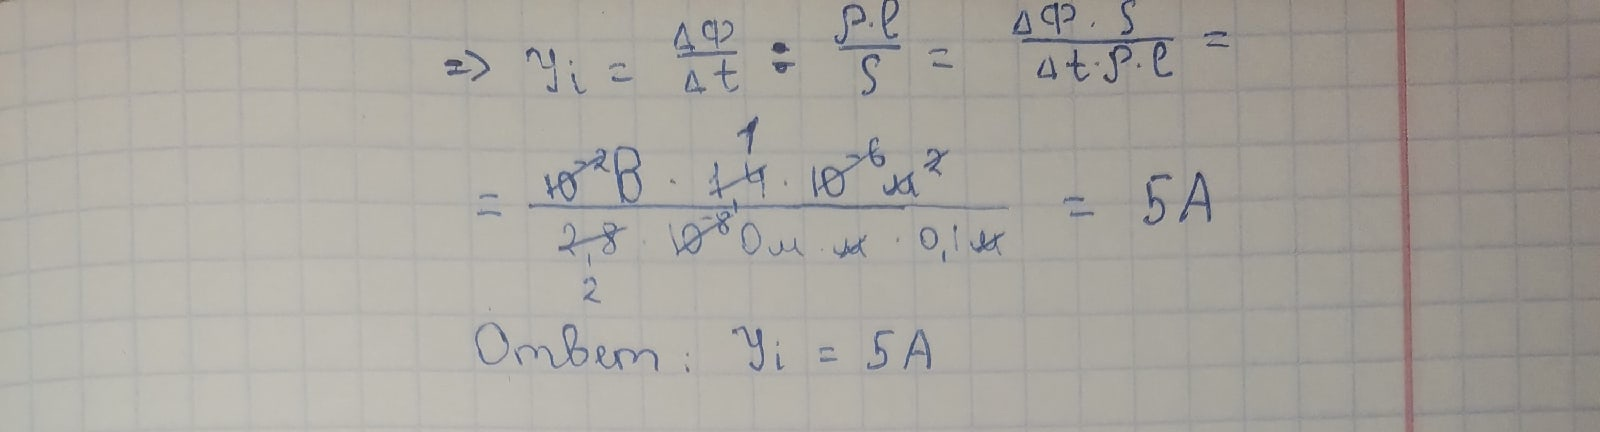 => Yi = ΔΦ/Δt : ρ·l/S = ΔΦ·S/Δt·ρ·l =
= 10⁻²В · 1,4 · 10⁻⁶ м² / 2,8 · 10⁻⁸ Ом·м · 0,1м = 5А
Ответ: Yi = 5А